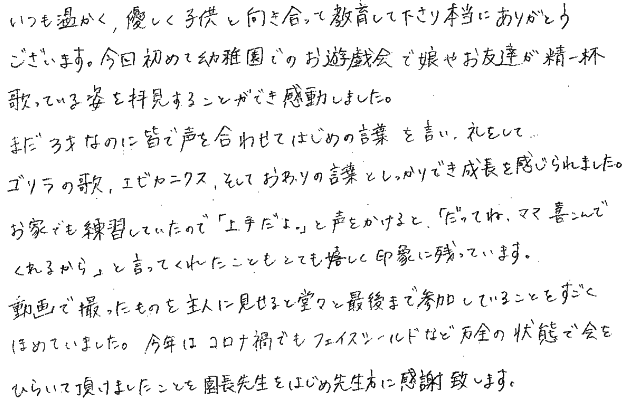 いつも温かく、優しく子供と向き合って教育して下さり本当にありがとう
ございます。今回初めて幼稚園でのお遊戯会で娘やお友達が精一杯
歌っている姿を拝見することができ感動しました。
まだ3才なのに皆で声を合わせてはじめの言葉を言い、礼をして
ゴリラの歌、エビカニクス、そしておわりの言葉としっかりでき成長を感じられました。
お家でも練習していたので「上手だよ。」と声をかけると、「だってね、ママ喜こんで
くれるから」と言ってくれたこともとても嬉しく印象に残っています。
動画で撮ったものを主人に見せると堂々と最後まで参加していることをすごく
ほめていました。今年はコロナ禍でもフェイスシールドなど万全の状態で会を
ひらいて頂けましたことを園長先生をはじめ先生方に感謝致します。